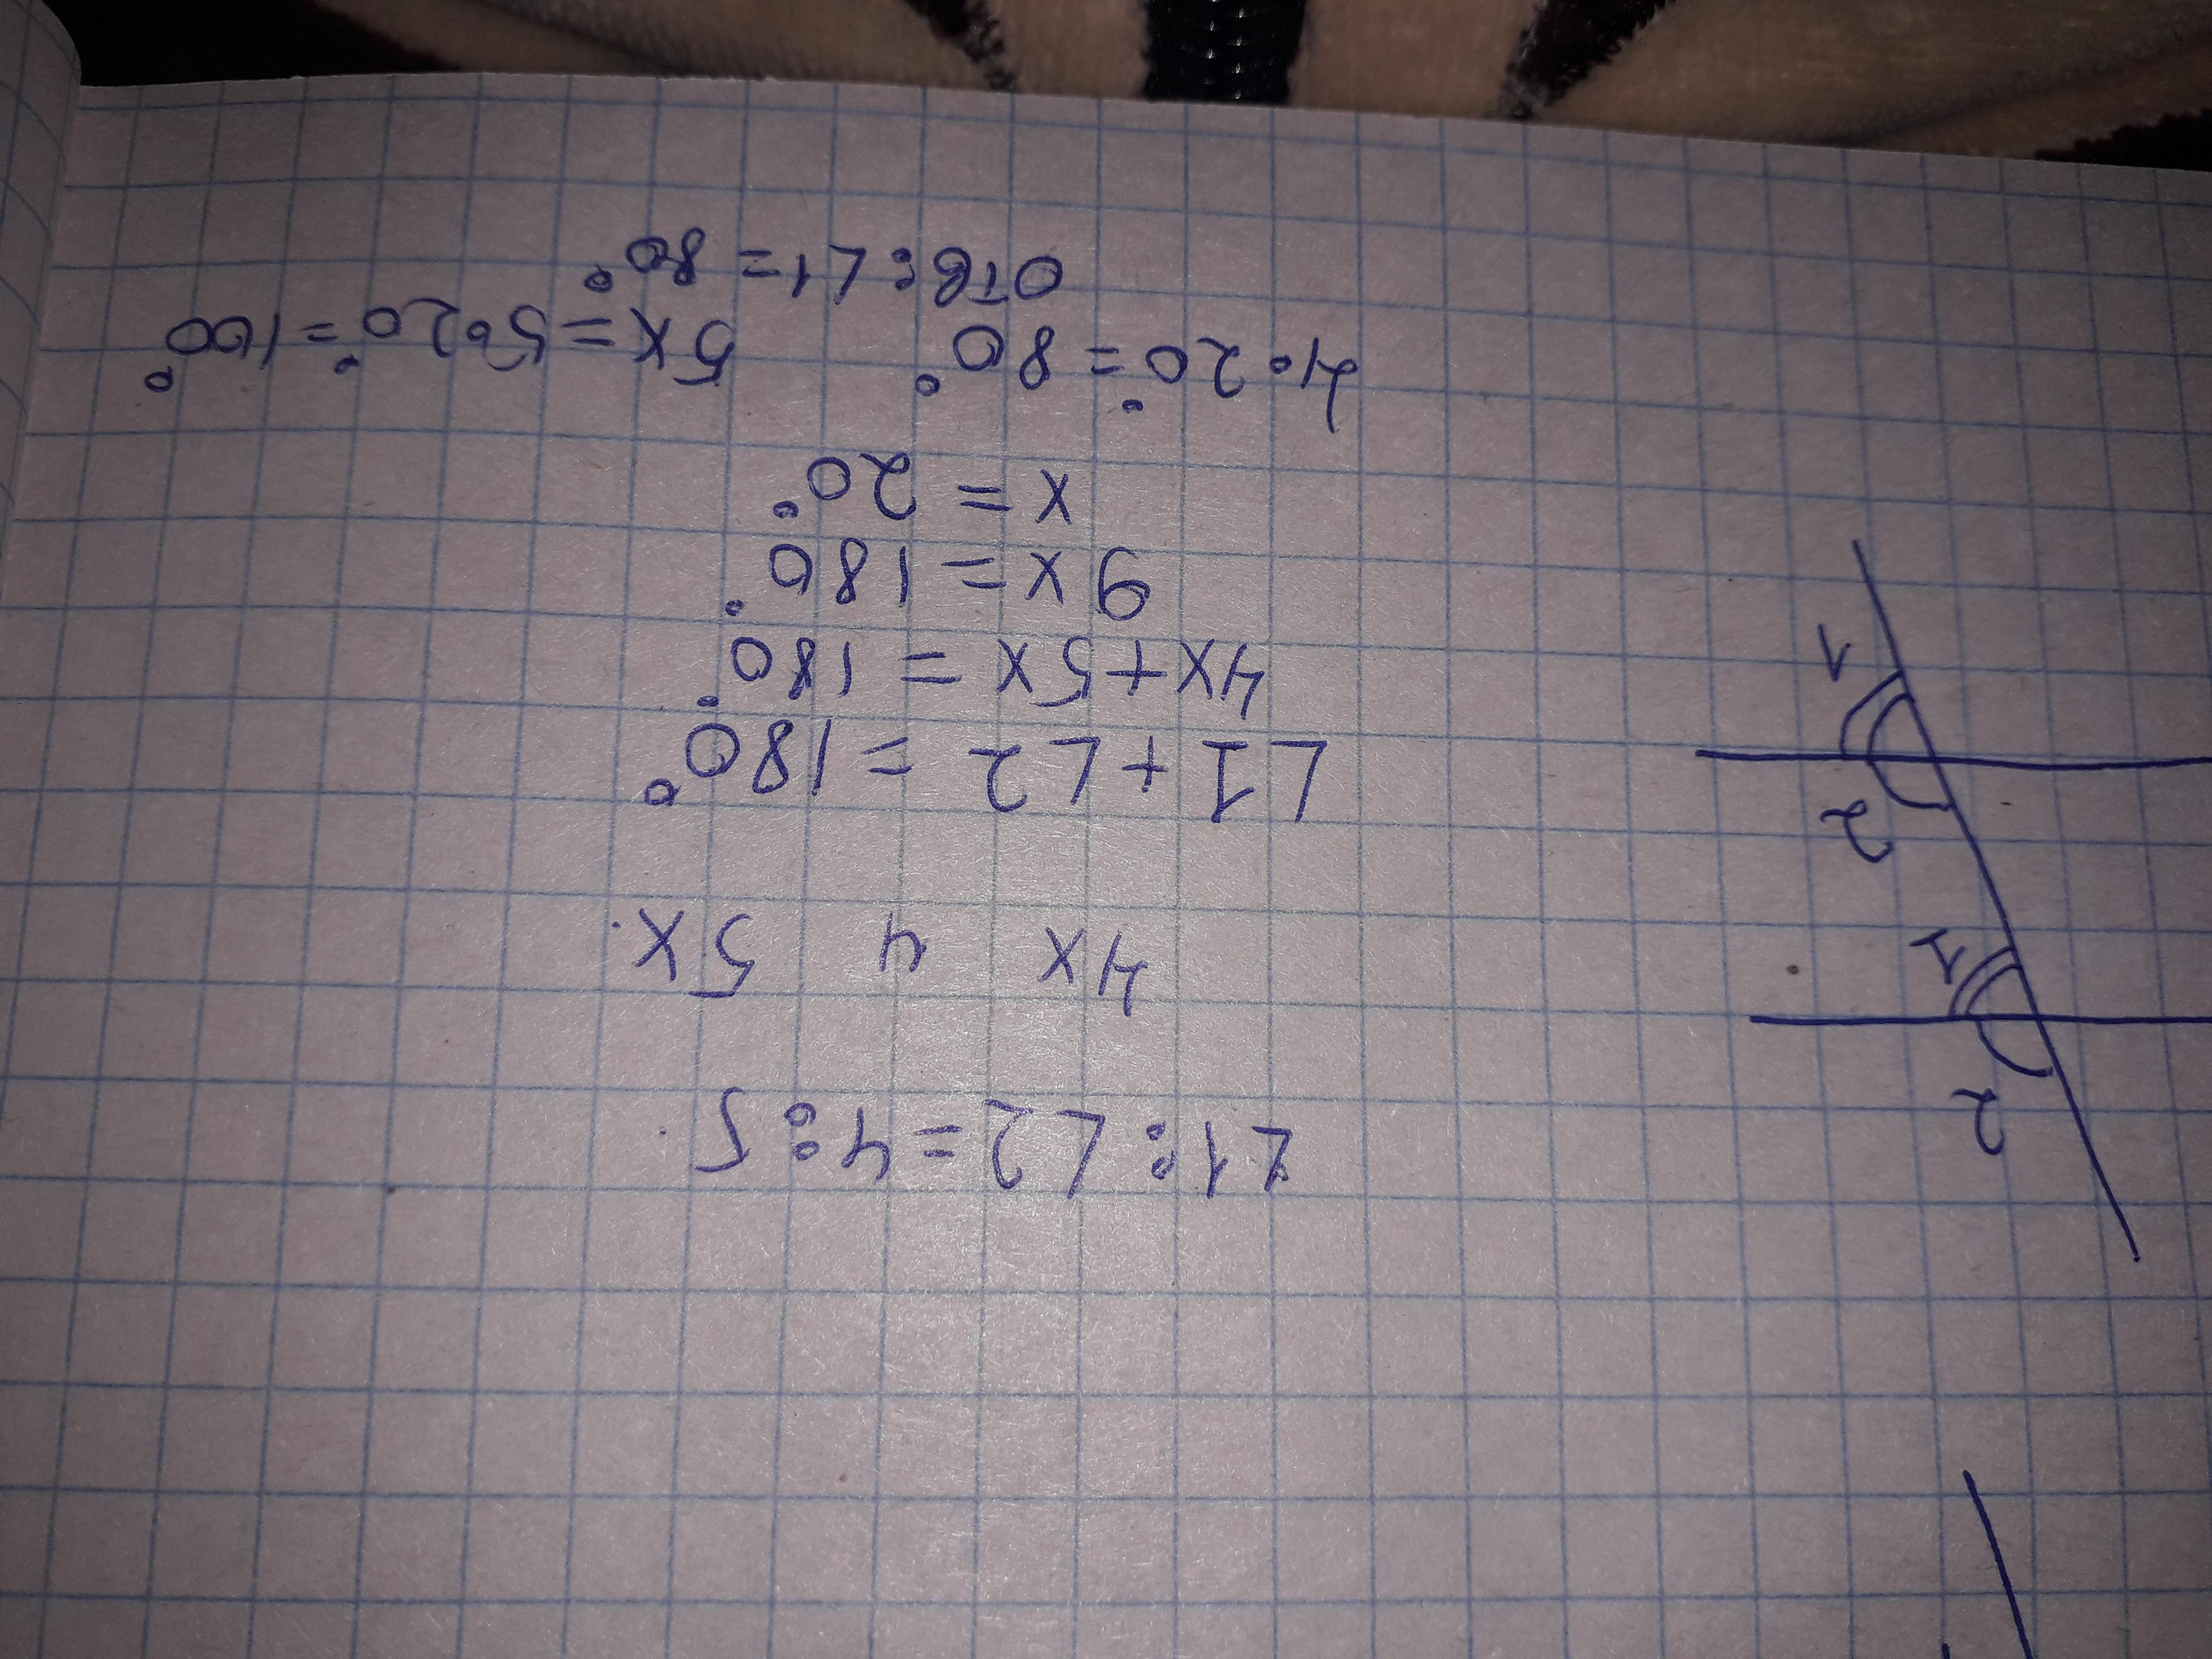 ∠1:∠2=4:5
4x и 5x.
∠1+∠2=180°
4x+5x=180°
9x=180°
x=20°
4•20°=80° 5x=5•20°=100°
Отв: ∠1=80°
2
1
2
1